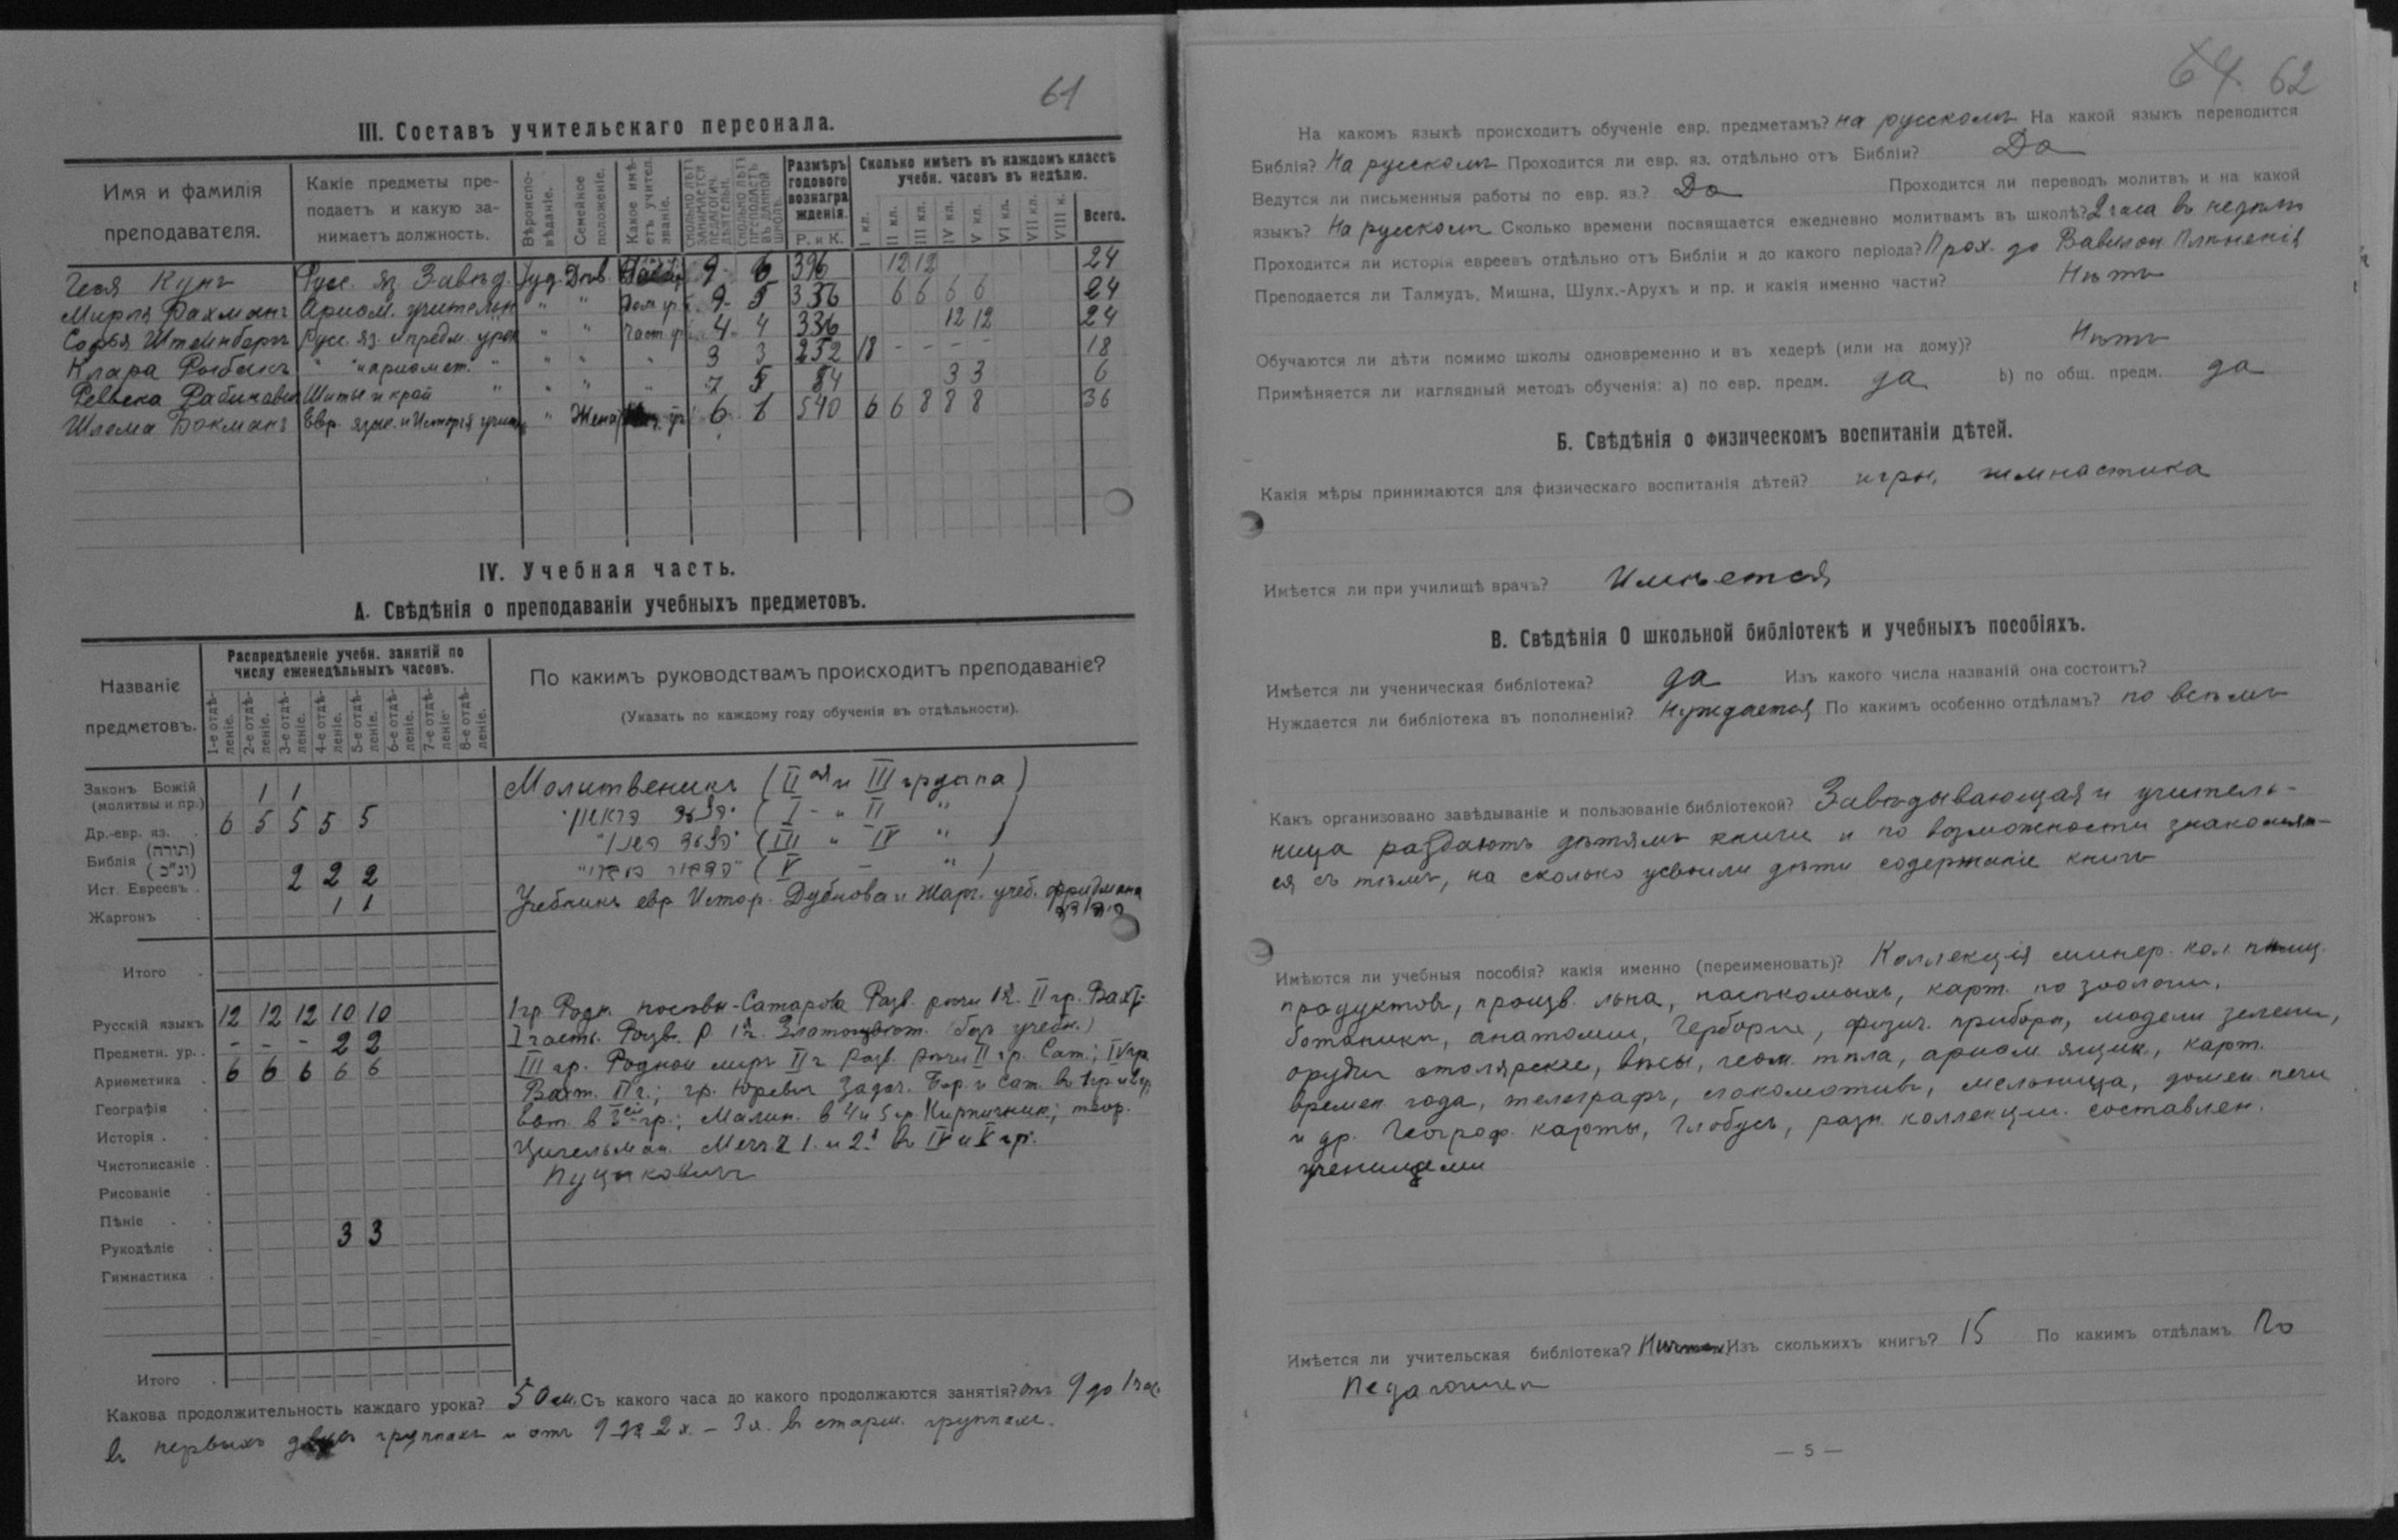 61
III. Составъ учительскаго персонала.
Имя и фамилія преподавателя.
Какіе предметы преподаетъ и какую занимаетъ должность.
Вѣроисповѣданіе.
Семейное положеніе.
Какое имѣетъ учител. званіе.
Сколько лѣтъ занимается педагогич. дѣятельн.
Сколько лѣтъ преподастъ въ данной школѣ.
Размѣръ годового вознагражденія.
Р. и К.
Сколько имѣетъ въ каждомъ классѣ учебн. часовъ въ недѣлю.
I кл. II кл. III кл. IV кл. V кл. VI кл. VII кл. VIII к. Всего.
Кунъ Русс. яз. Завѣд. Іуд. Дѣв. 9 6 396 12 12 24
Мирля Фахманъ Ариѳм. учительн " " Дом. уч. 9 5 336 6 6 6 6 24
Софья Штейнбергъ Русс. яз. и предм. урок " " Част. уч. 4 4 336 12 12 24
Клара Рыбакъ " " и ариѳмет. " " " " 3 3 252 18 - - - - 18
Ревека Рабинович Шитье и край " " " " 7 5 84 3 3 6
Шлема Бокманъ Евр. язык. и Исторія учит. " Женат 6 1 540 6 6 8 8 8 36
IV. Учебная часть.
А. Свѣдѣнія о преподаваніи учебныхъ предметовъ.
Названіе предметовъ.
Распредѣленіе учебн. занятій по числу еженедѣльныхъ часовъ.
1-е отдѣленіе. 2-е отдѣленіе. 3-е отдѣленіе. 4-е отдѣленіе. 5-е отдѣленіе. 6-е отдѣленіе. 7-е отдѣленіе. 8-е отдѣленіе.
По какимъ руководствамъ происходитъ преподаваніе?
(Указать по каждому году обученія въ отдѣльности).
Законъ Божій (молитвы и пр.) 1 1 Молитвеникъ (II ая и III группа)
Др.-евр. яз. 6 5 5 5 5 ( I - " II " )
Библія (תורה) (נ"ך) (III " IV " )
( V – " )
Ист. Евреевъ 2 2 2
Жаргонъ 1 1 Учебникъ евр. Истор. Дубнова и Жарг. учеб. Фридмана
Итого
Русскій языкъ 12 12 12 10 10 1 гр. Родн. посѣвы - Сатарова Разв. рѣчи 1 ч. II гр. Вахт.
Предметн. ур. - - - 2 2 I часть. Разв. р. 1 ч. (безъ учебн.)
Ариѳметика 6 6 6 6 6 III гр. Родной міръ II ч. разв. рѣчи II гр. Сат.; IV гр.
Географія Вахт. II ч.; гр. Юревич задач.
Исторія гр.; Малин. в 4 и 5 гр. Кирпичник;
Чистописаніе 1. и 2. въ IV и V гр.
Рисованіе Пуцыковичъ
Пѣніе
Рукодѣліе 3 3
Гимнастика
Итого
Какова продолжительность каждаго урока? 50 м. Съ какого часа до какого продолжаются занятія? отъ 9 до 1 час.
въ первыхъ двухъ группахъ и отъ 9 до 2 х. – 3 х. въ старш. группах.
64. 62
На какомъ языкѣ происходитъ обученіе евр. предметамъ? на русскомъ На какой языкъ переводится
Библія? На русскомъ Проходится ли евр. яз. отдѣльно отъ Библіи? Да
Ведутся ли письменныя работы по евр. яз.? Да Проходится ли переводъ молитвъ и на какой
языкъ? На русскомъ Сколько времени посвящается ежедневно молитвамъ въ школѣ? 2 часа въ недѣлю
Проходится ли исторія евреевъ отдѣльно отъ Библіи и до какого періода? Прох. до Вавилон. Плѣненія
Преподается ли Талмудъ, Мишна, Шулх.-Арухъ и пр. и какія именно части? Нѣтъ
Обучаются ли дѣти помимо школы одновременно и въ хедерѣ (или на дому)? Нѣтъ
Примѣняется ли наглядный методъ обученія: а) по евр. предм. да b) по общ. предм. да
Б. Свѣдѣнія о физическомъ воспитаніи дѣтей.
Какія мѣры принимаются для физическаго воспитанія дѣтей? игры, гимнастика
Имѣется ли при училищѣ врачъ? Имѣется
В. Свѣдѣнія О школьной библіотекѣ и учебныхъ пособіяхъ.
Имѣется ли ученическая библіотека? да Изъ какого числа названій она состоитъ?
Нуждается ли библіотека въ пополненіи? Нуждается По какимъ особенно отдѣламъ? по всѣмъ
Какъ организовано завѣдываніе и пользованіе библіотекой? Завѣдывающая и учитель-
ница раздаютъ дѣтямъ книги и по возможности знакомят-
ся съ тѣмъ, на сколько усвоили дѣти содержаніе книгъ
Имѣются ли учебныя пособія? какія именно (переименовать)? Коллекція минер. кол. пищ.
продуктовъ, произв. льна, насѣкомыхъ, карт. по зоологіи,
ботаники, анатоміи, Гербаріи, физич. приборы, модели зелени,
орудія столярскіе, вѣсы, геом. тѣла, ариѳм. ящик, карт.
времен года, телеграфъ, локомотивъ, мельница, домен. печи
и др. Географ. карты, Глобусъ, разн. коллекціи. составлен.
ученицами
Имѣется ли учительская библіотека? Изъ сколькихъ книгъ? 15 По какимъ отдѣламъ По
Педагогикѣ
— 5 —